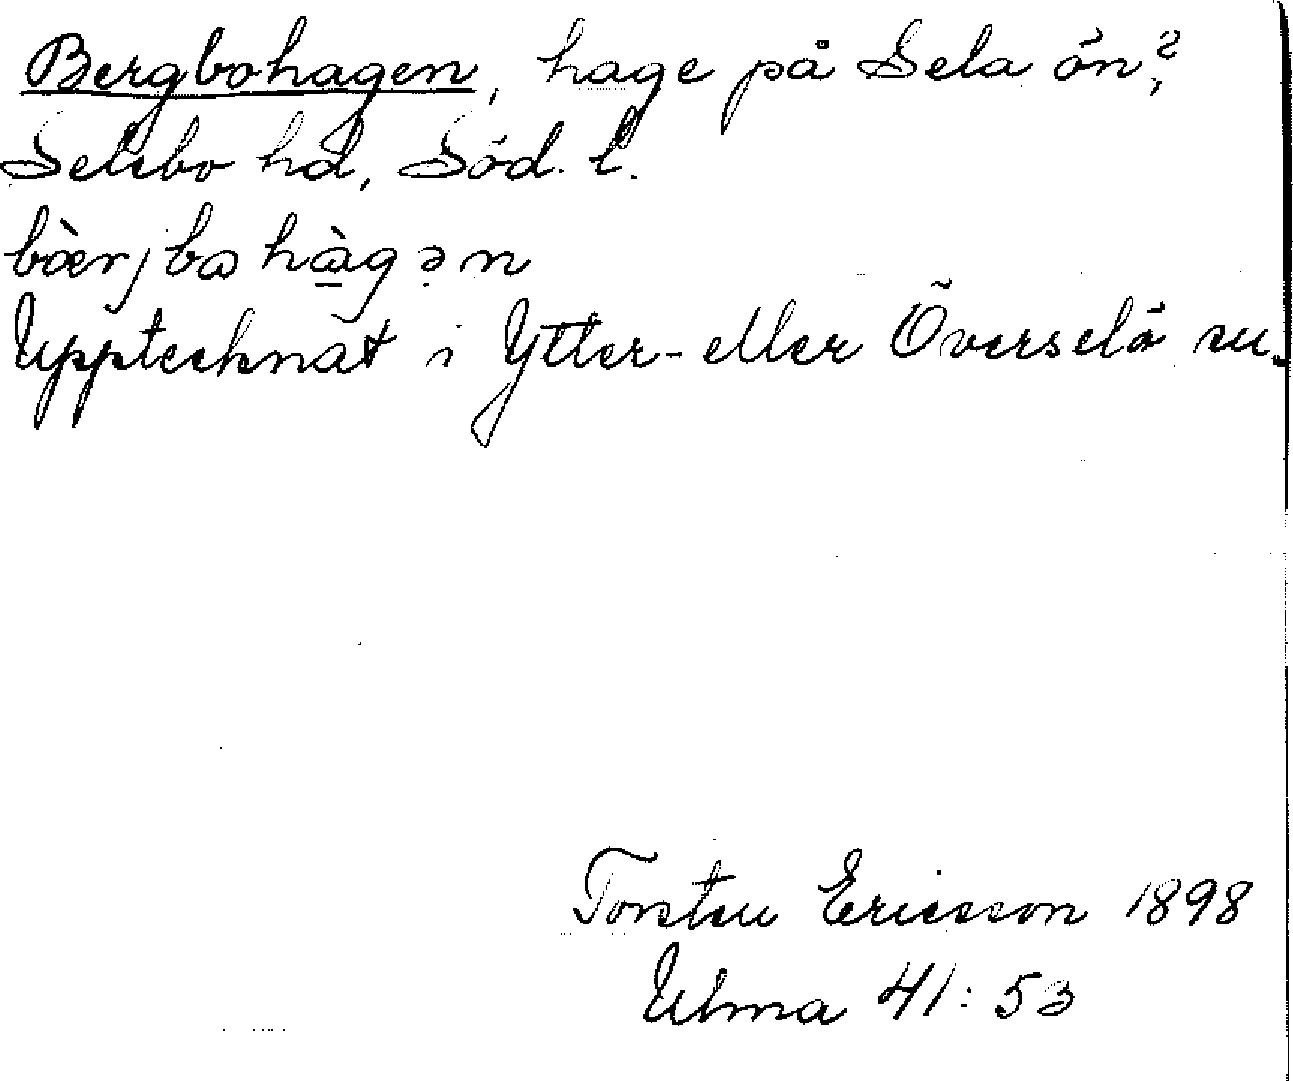 Bergbohagen, hage på Sela ön?,
Selebo hd, Söd. l.
bæ̀rjbωhàgən
Upptecknat i Ytter- eller Överselö sn.
Torsten Ericsson 1898
Ulma 41:53